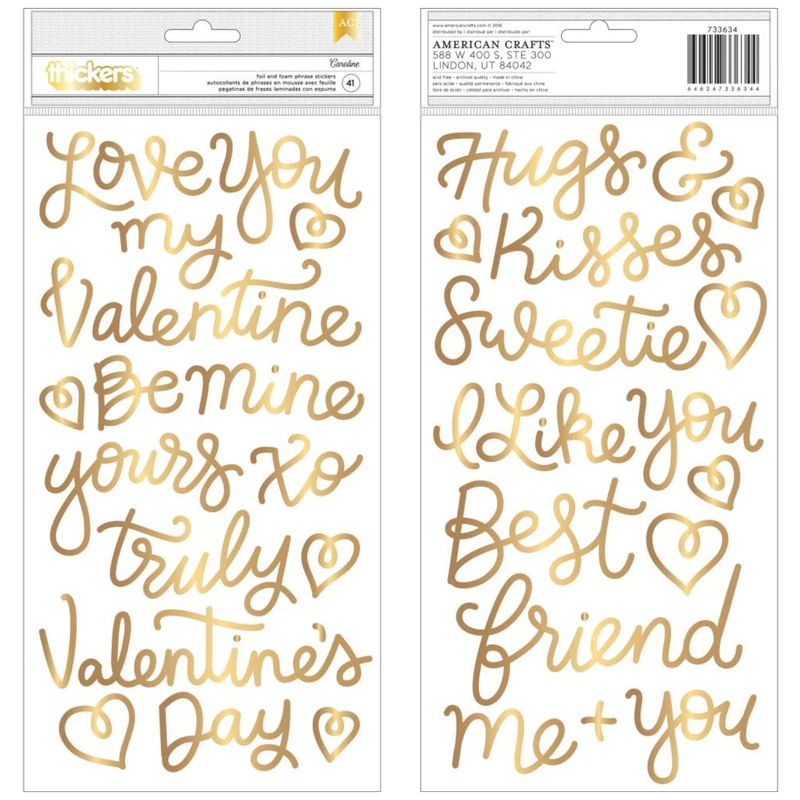 AC
thickers
Caroline
foil and foam phrase stickers
autocollants de phrases en mousse avec feuille
pegatinas de frases laminadas con espuma
41
Love You
my
Valentine
Be mine
yours xo
truly
Valentine's
Day
www.americancrafts.com © 2016
distributed by | distribué par | distribuido por
AMERICAN CRAFTS™
588 W 400 S, STE 300
LINDON, UT 84042
acid free • archival quality • made in china
sans acide • qualité permanente • fabriqué aux chine
libre de ácido • calidad para archivar • hecho en china
733634
646247336344
Hugs &
Kisses
Sweetie
I Like You
Best
friend
me + you